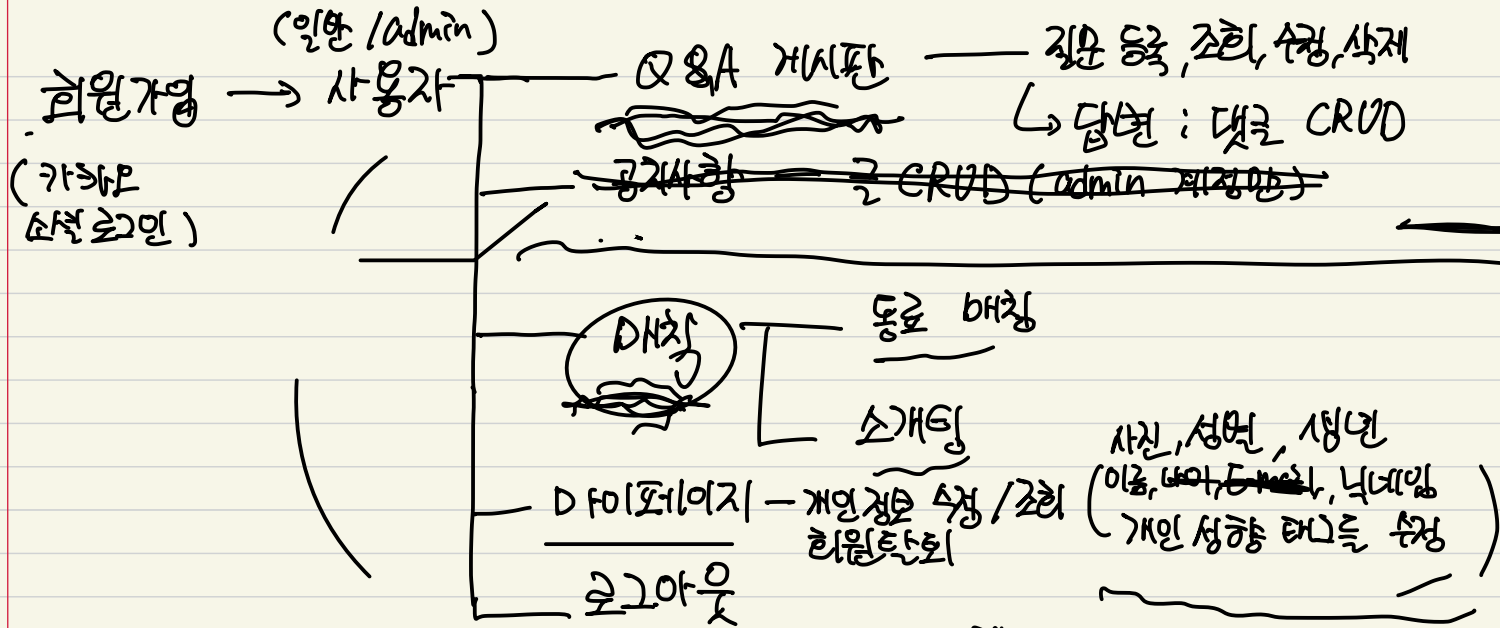 (일반 / admin)
회원가입 → 사용자
(카카오
소셜 로그인)
Q&A 게시판 — 질문 등록, 조회, 수정, 삭제
↳ 답변 : 댓글 CRUD
공지사항 — 글 CRUD (admin 계정만)
매칭
동료 매칭
소개팅
마이페이지 — 개인정보 수정 / 조회
회원탈퇴
사진, 성별, 생년
(이름, 나이, E-mail, 닉네임
개인 성향 태그들 수정)
로그아웃